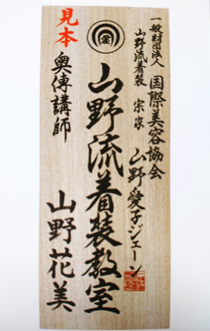 一般財団法人 国際美容協会
山野流着装 宗家 山野愛子ジェーン
愛
山野流着装教室
見本
奥傳講師 山野花美